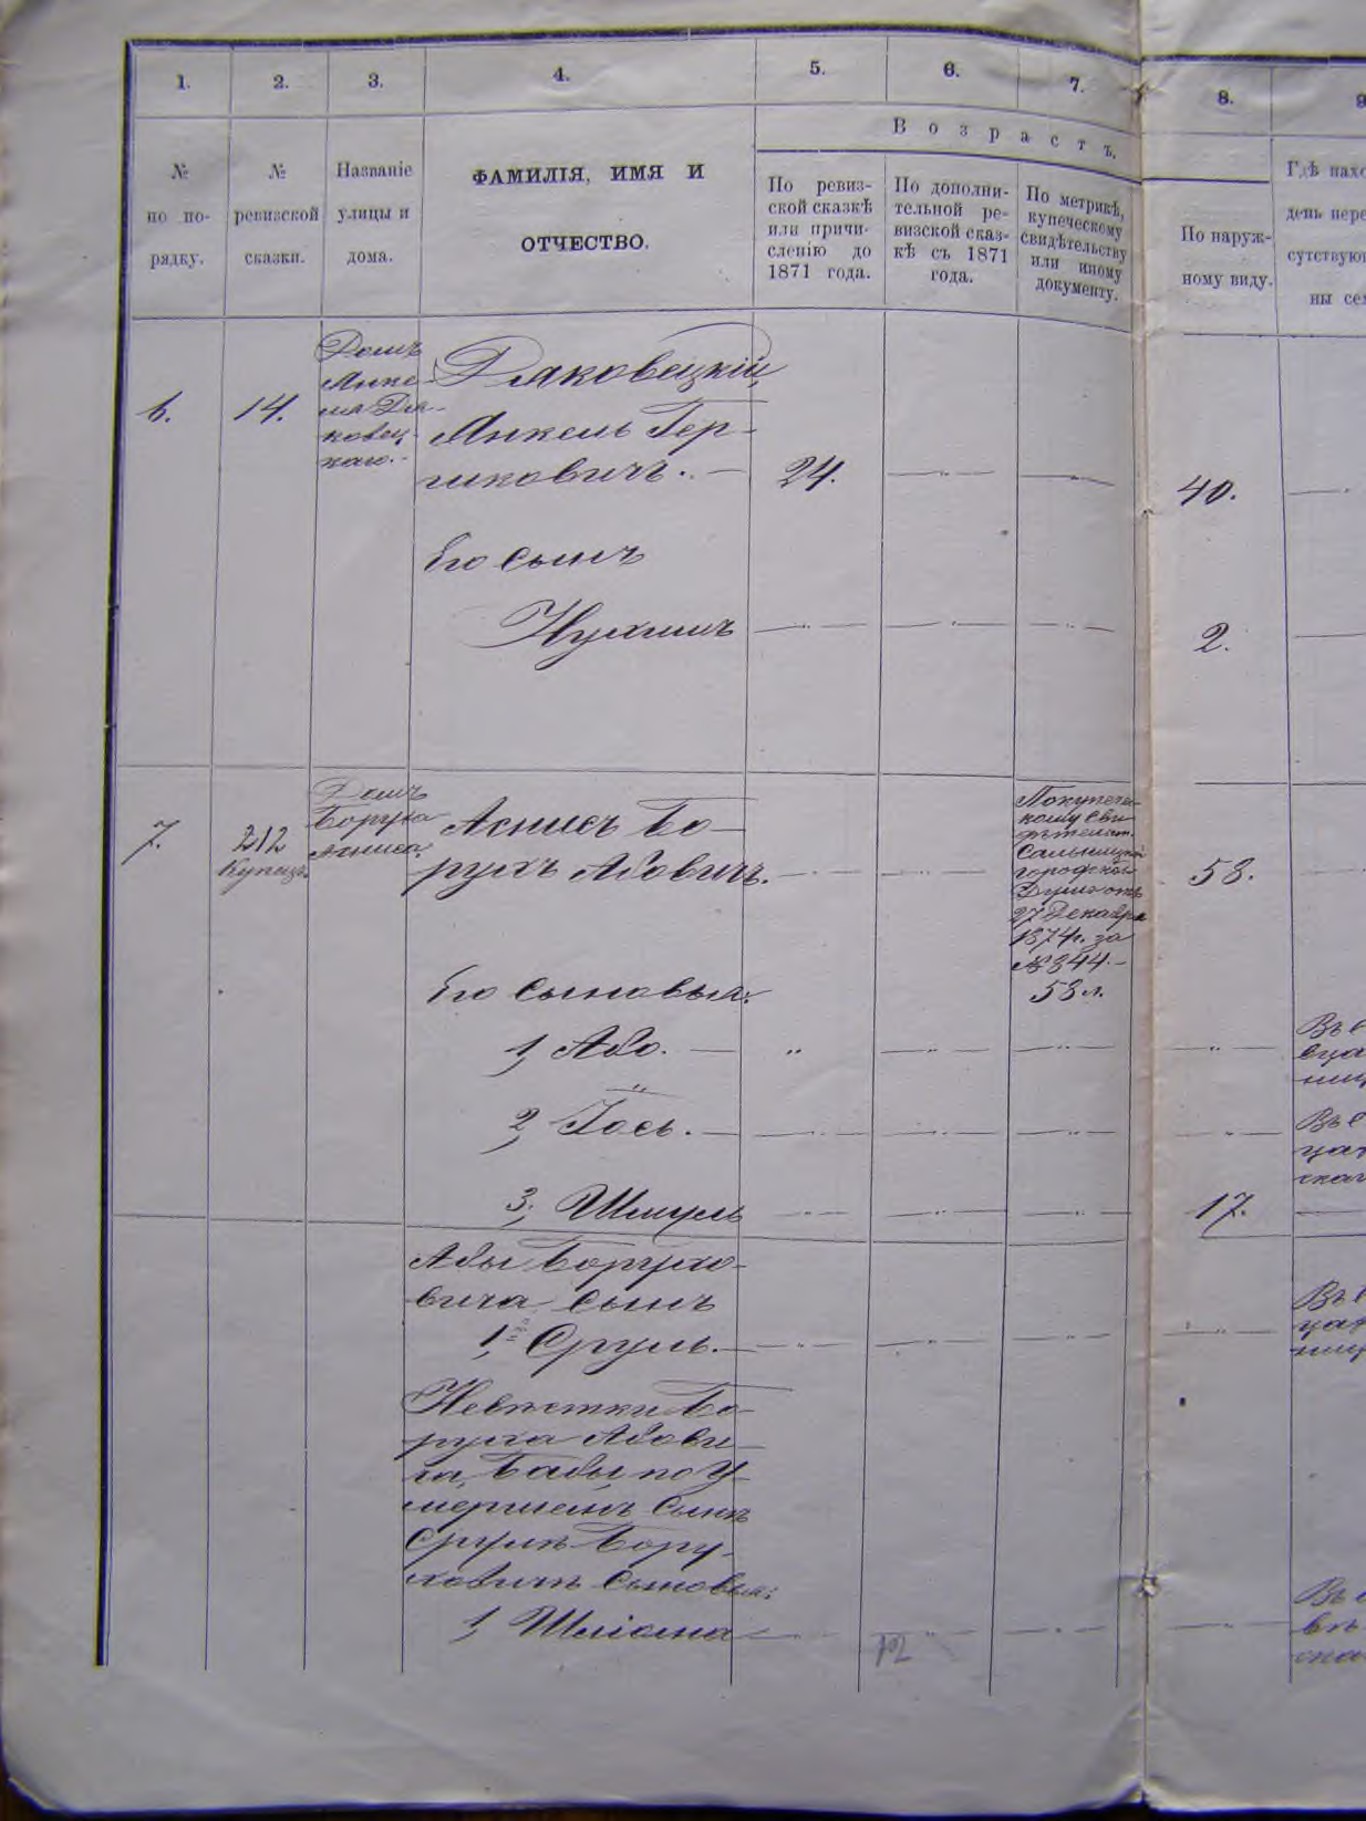 1. 2. 3. 4. 5. 6. 7. 8. 9
Возрастъ.
№ по по-рядку.
№ ревизской сказки.
Названіе улицы и дома.
ФАМИЛІЯ, ИМЯ И
ОТЧЕСТВО.
По ревиз-
ской сказкѣ
или причи-
сленію до
1871 года.
По дополни-
тельной ре-
визской сказ-
кѣ съ 1871
года.
По метрикѣ,
купеческому
свидѣтельству
или иному
документу.
По наруж-
ному виду.
Гдѣ нахо
день пере
сутствую
ны сем
6.
14.
Домъ
Янке-
ля Дя-
ковец-
каго.-
Дяковецкій,
Янкель Гер-
шковичъ. — 24. 40.
Его сынъ
Нухимъ 2.
7.
212
Купецъ.
Домъ
Боруха
Асниса.
Аснисъ Бо-
рухъ Абовичъ. 58.
Покупече-
кому сви-
дѣтельст.
Сальницкой
городской
Думы отъ
27 Декабря
1874г. за
№ 844.-
58 л.
Его сыновья:
1, Або. —
2, Іось. —
3, Шмуль 17.
Абы Борухо-
вича сынъ
1, Сруль. —
Невѣстки Бо-
руха Абови-
ча, Бабы по у-
мершемъ сынѣ
Срулѣ Бору-
ховичѣ сыновья:
1, Шліома
Въ
Въ
Въ